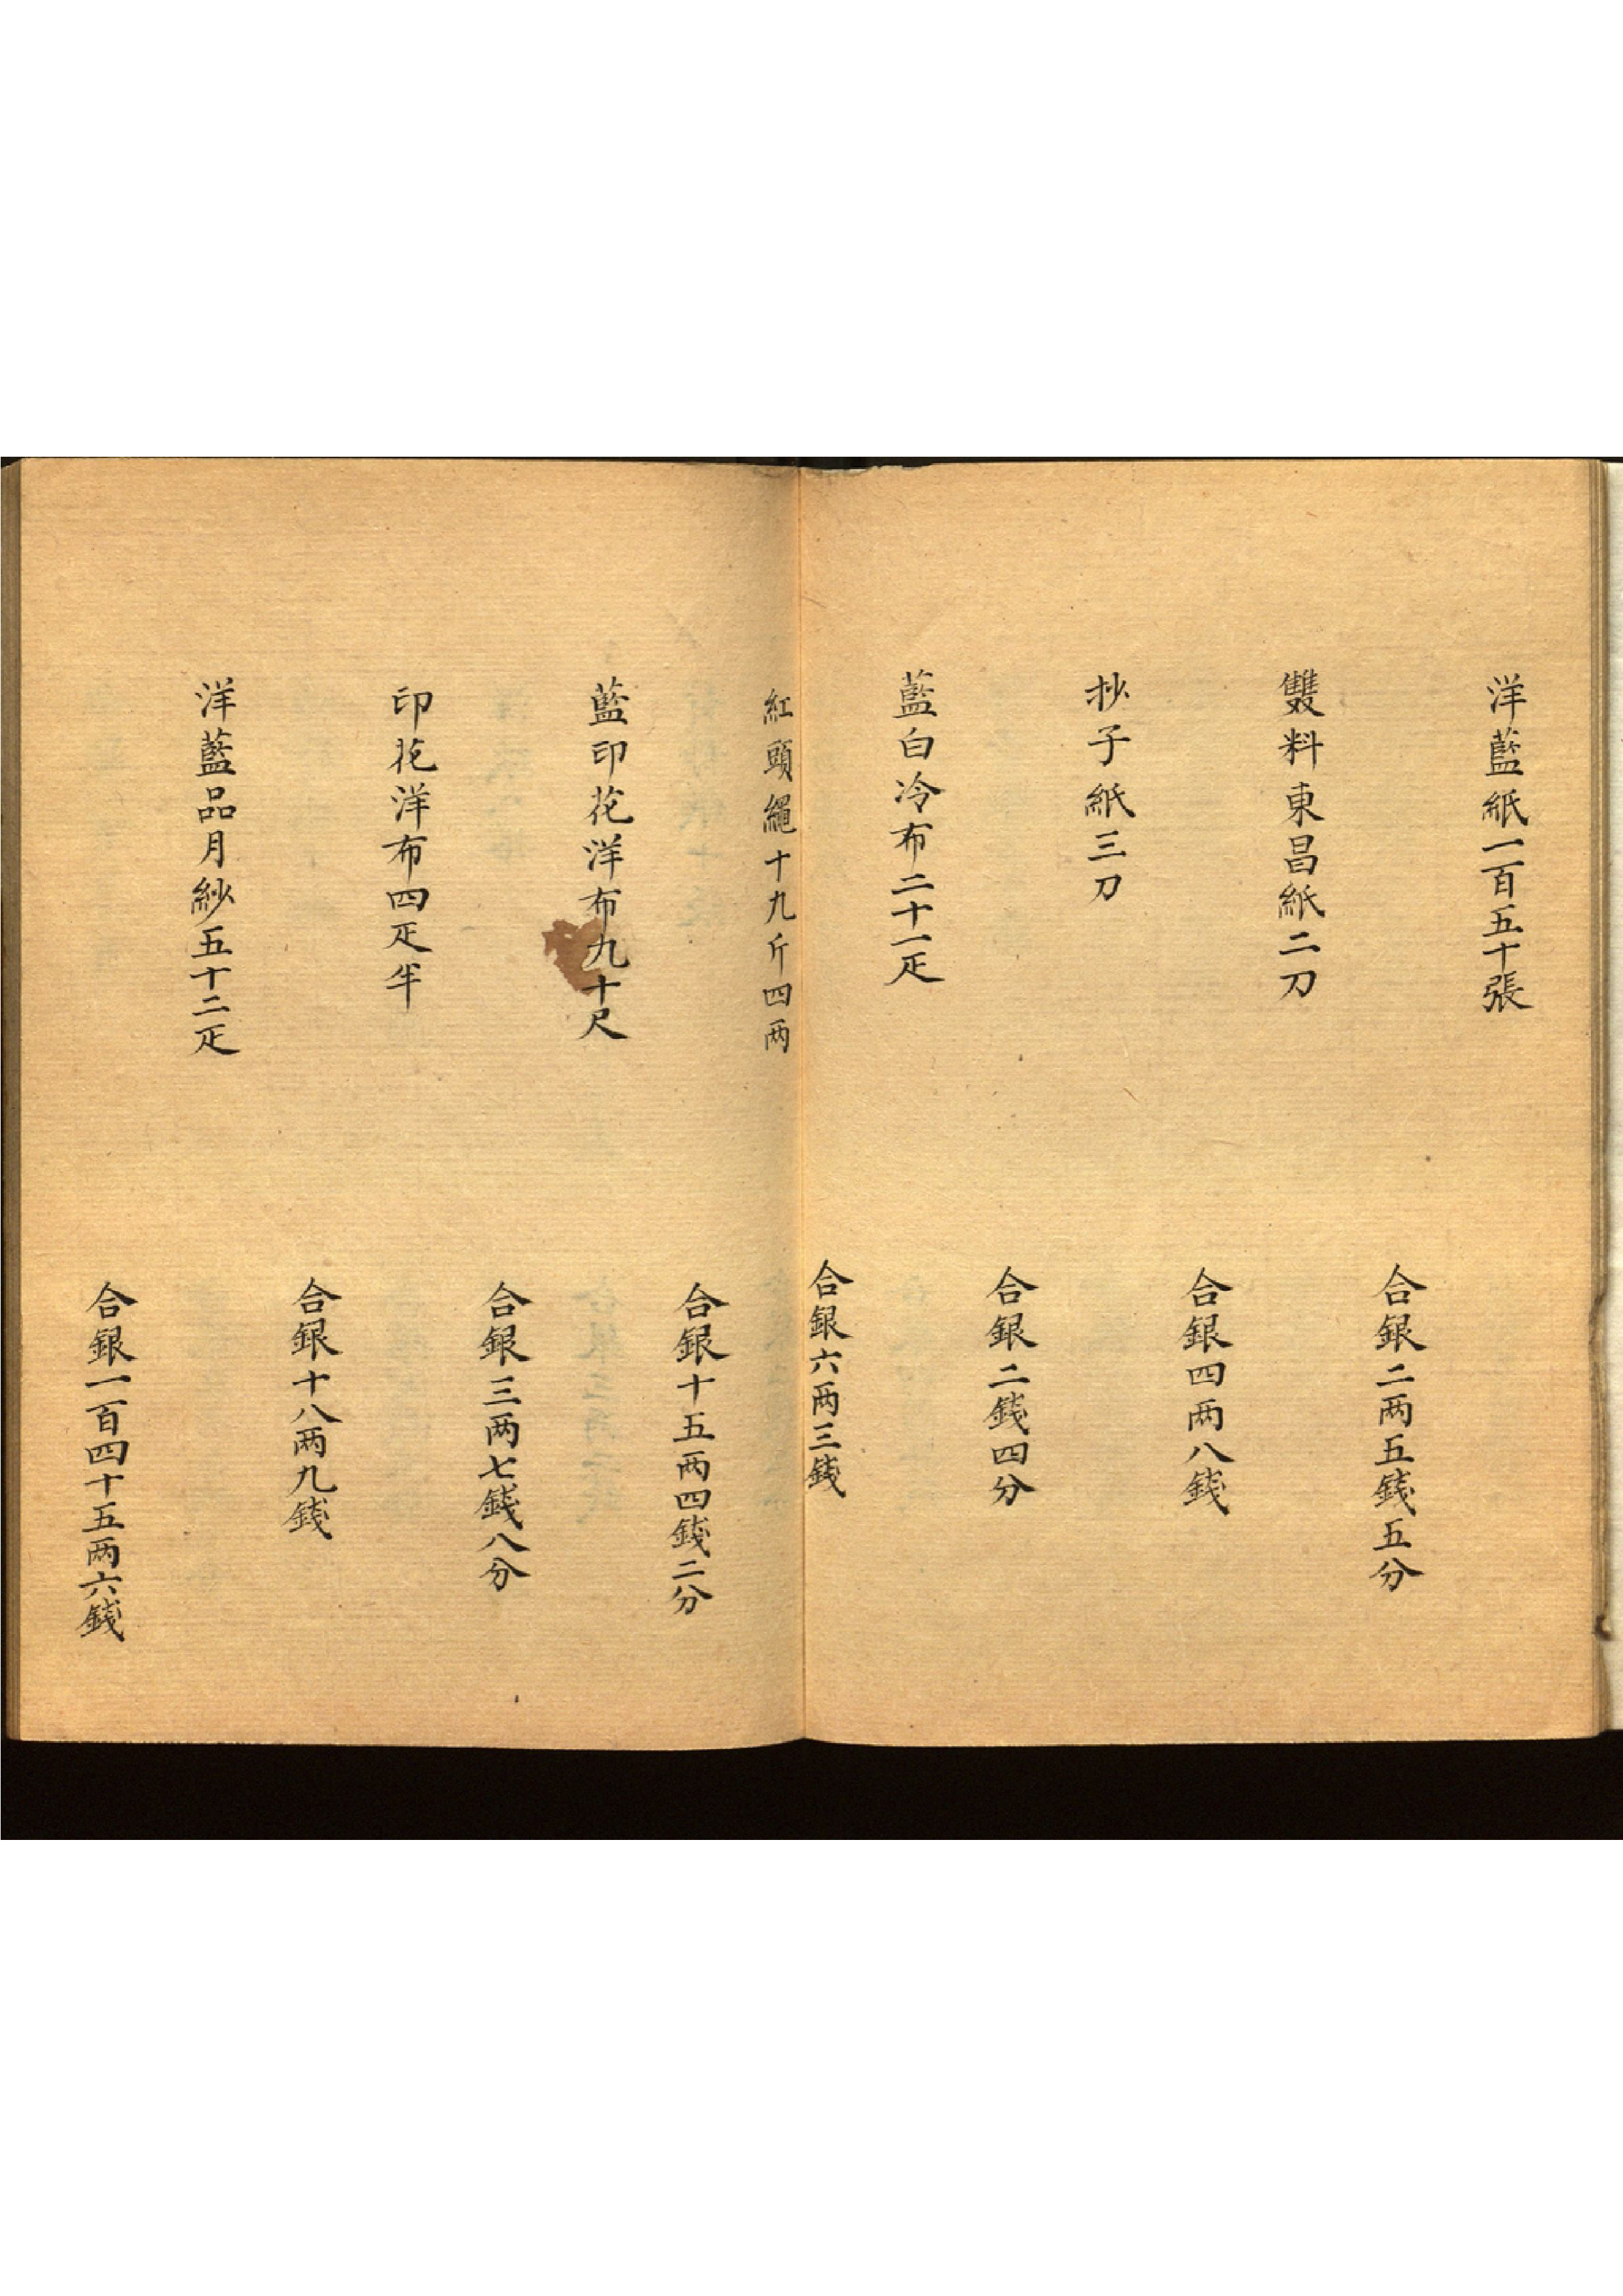 洋藍紙一百五十張
合銀二两五錢五分
雙料東昌紙二刀
合銀四两八錢
抄子紙三刀
合銀二錢四分
藍白冷布二十一疋
合銀六两三錢
紅頭繩十九斤四两
合銀十五两四錢二分
藍印花洋布九十尺
合銀三两七錢八分
印花洋布四疋半
合銀十八两九錢
洋藍品月紗五十二疋
合銀一百四十五两六錢